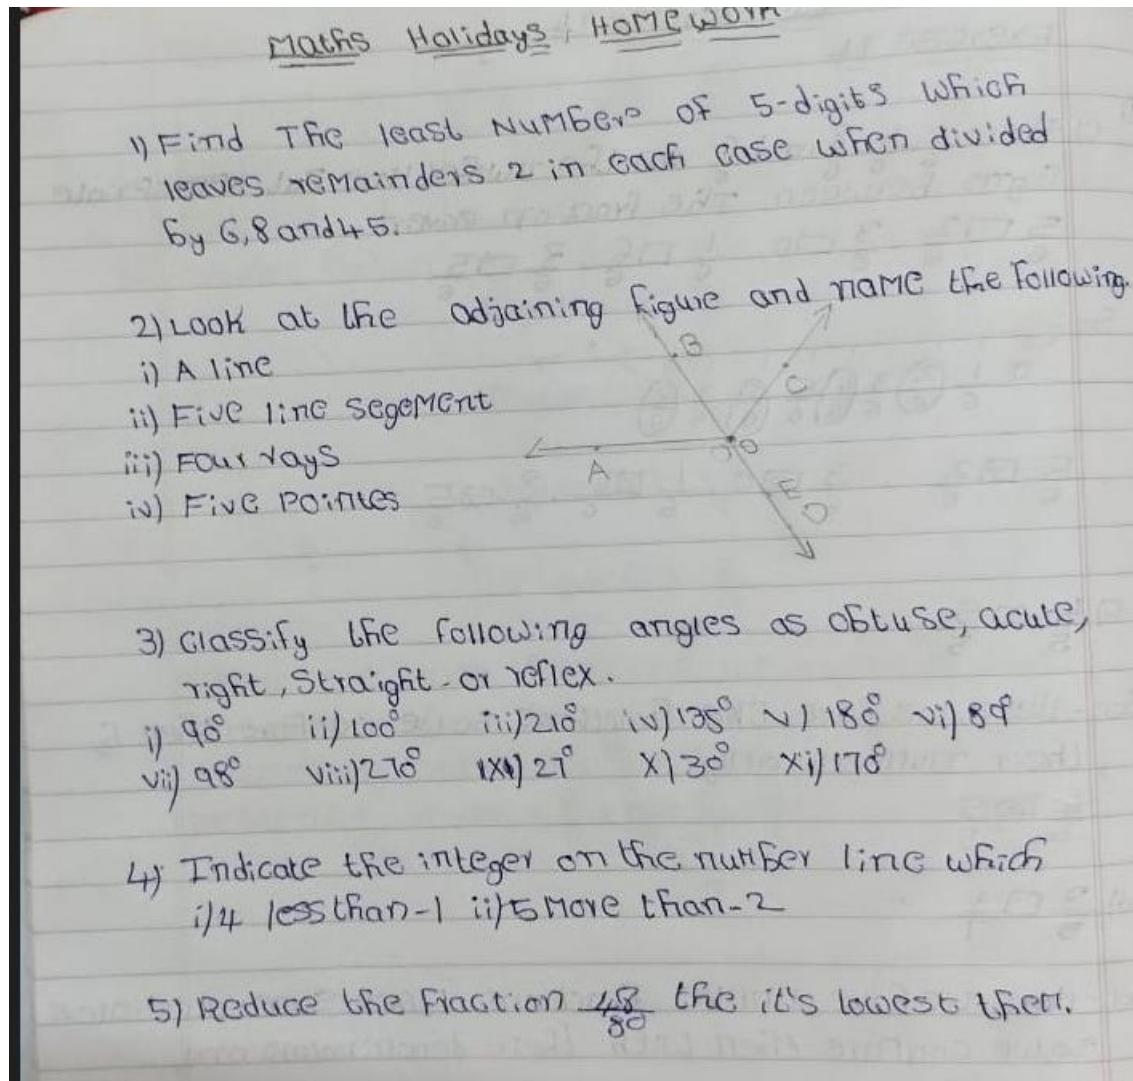 Maths Holidays, Homework
1) Find The least Numbers of 5-digits which
leaves remainders 2 in each case when divided
by 6,8 and 45.
2) Look at the adjaining figure and name the following.
i) A line
ii) Five line segement
iii) Four rays
iv) Five Pointes
B
C
A
O
E
D
3) Classify the following angles as obtuse, acute,
right, Straight or reflex.
i) 90° ii) 100° iii) 210° iv) 135° v) 180° vi) 89°
vii) 98° viii) 270° ix) 27° x) 30° xi) 170°
4) Indicate the integer on the number line which
i) 4 less than -1 ii) 5 More than -2
5) Reduce the Fraction 48/80 the it's lowest them.